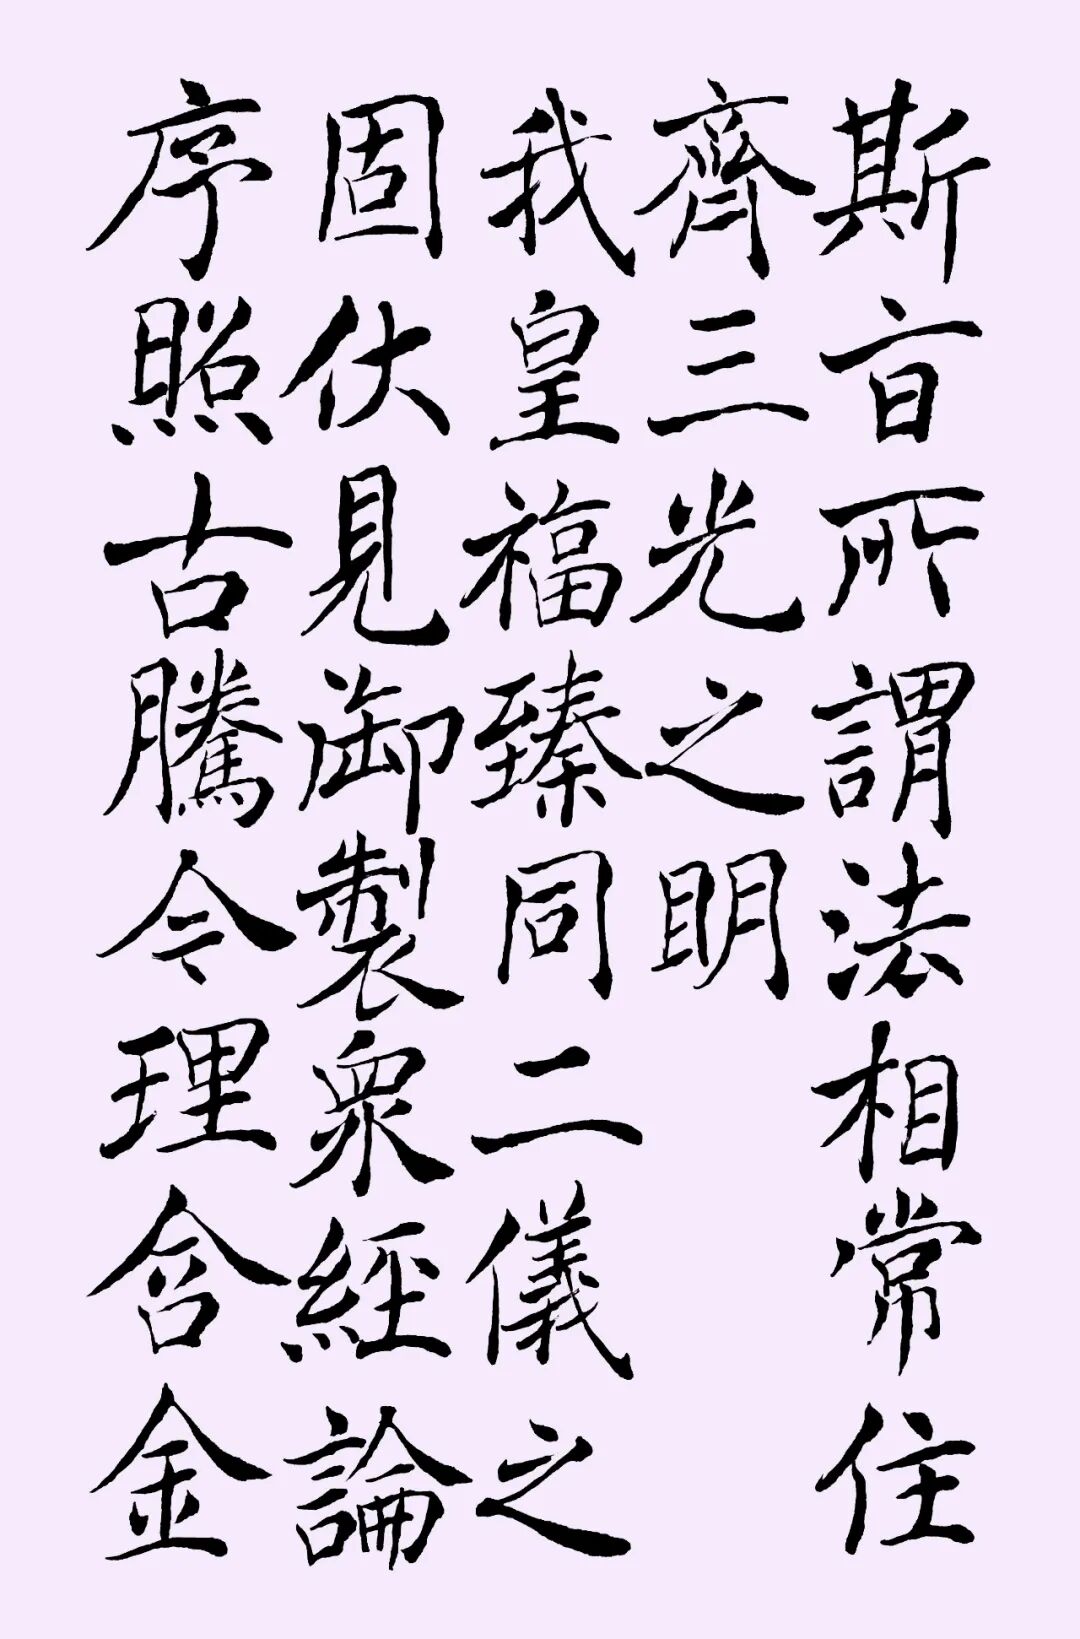 斯旨所謂法相常住
齊三光之明
我皇福臻同二儀之
固伏見御製衆經論
序照古騰令理含金